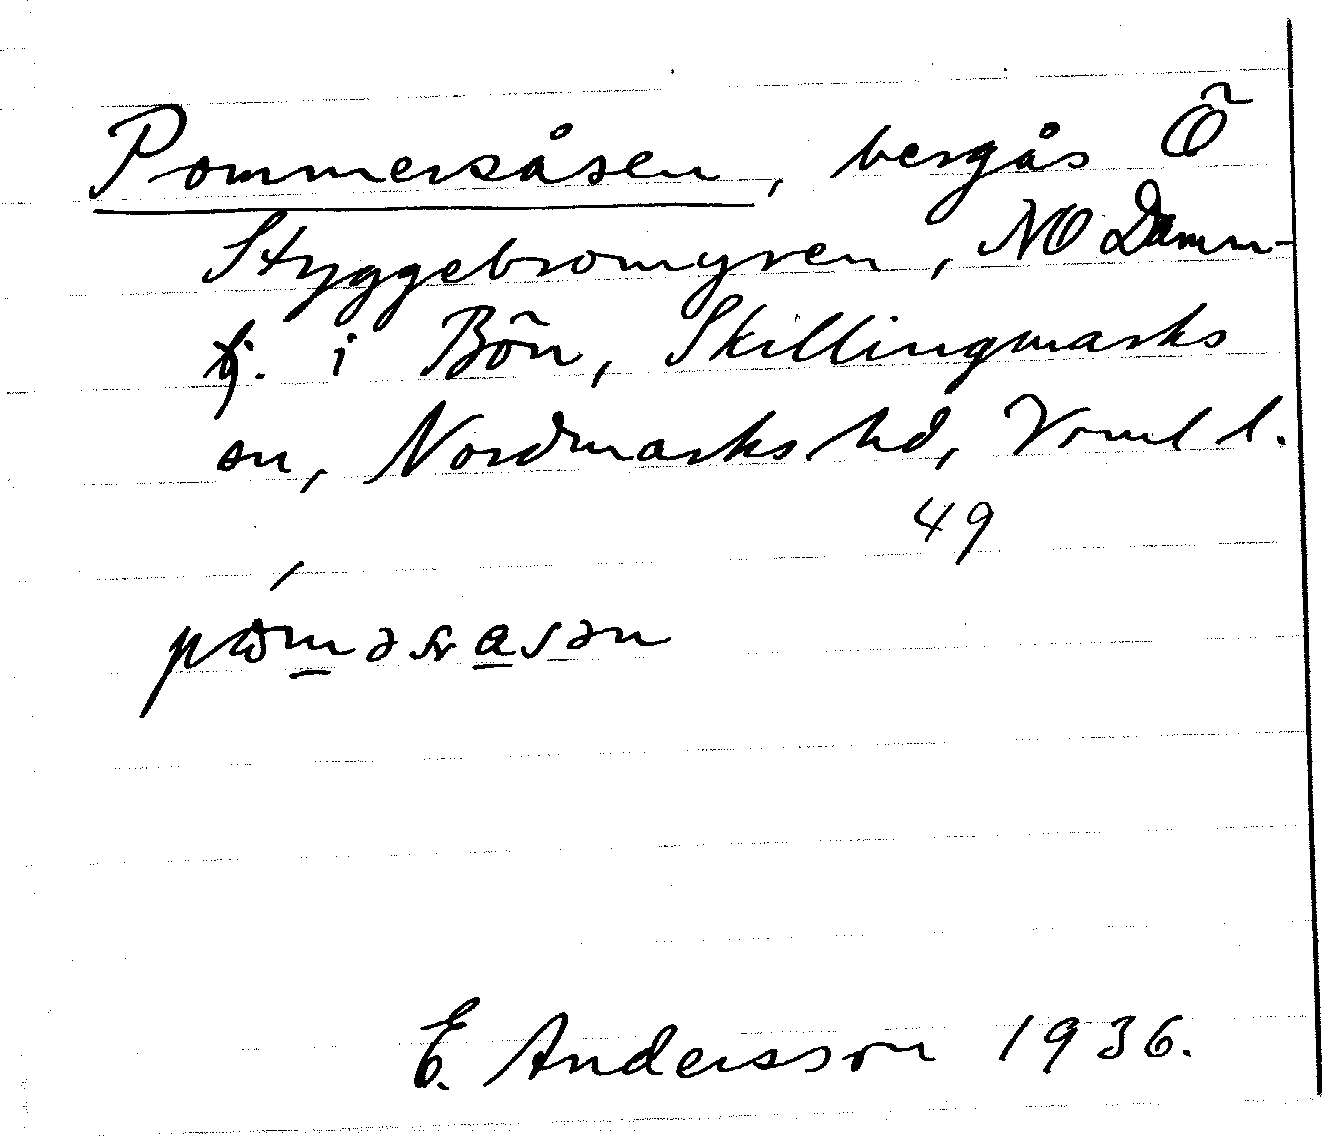 Pommersåsen, bergås Ö
Styggebromyren, NO Damm-
tj. i Bön, Skillingmarks
sn, Nordmarks hd, Vrml l.
49
E. Andersson 1936.